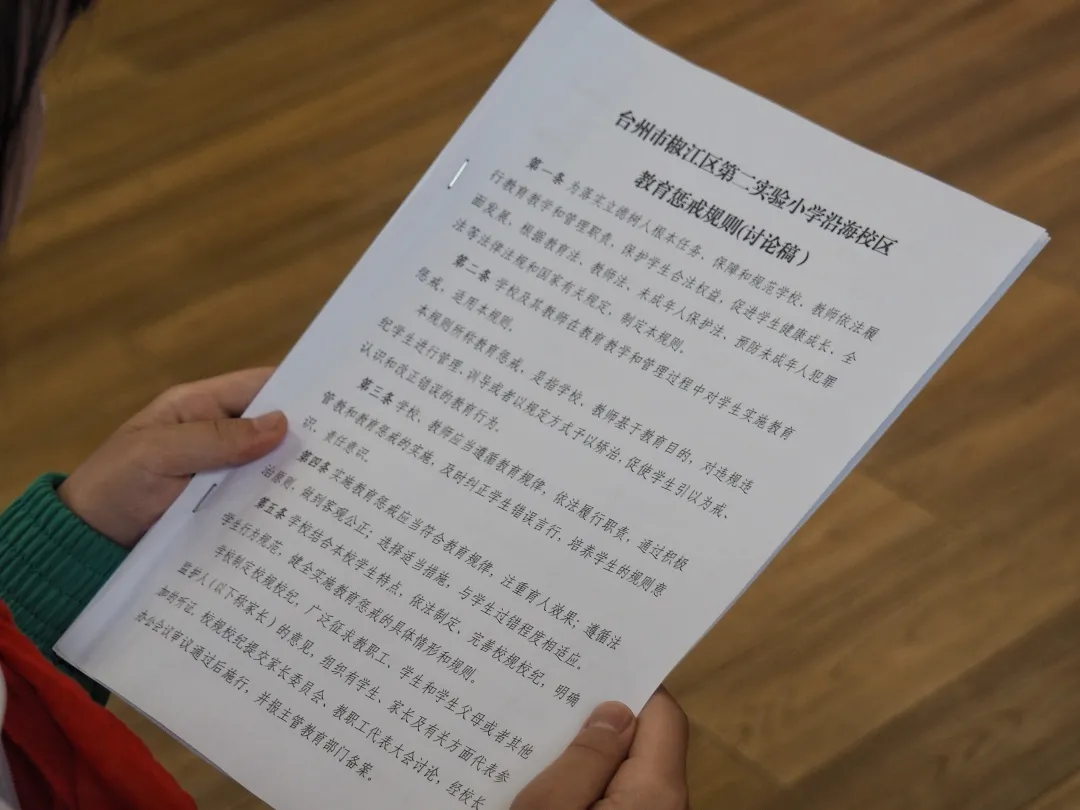 台州市椒江区第二实验小学沿海校区
教育惩戒规则(讨论稿)
第一条 为落实立德树人根本任务、保障和规范学校、教师依法履
行教育教学和管理职责,保护学生合法权益,促进学生健康成长、全
面发展,根据教育法、教师法、未成年人保护法、预防未成年人犯罪
法等法律法规和国家有关规定,制定本规则。
第二条 学校及其教师在教育教学和管理过程中对学生实施教育
惩戒,适用本规则。
本规则所称教育惩戒,是指学校、教师基于教育目的,对违规违
纪学生进行管理、训导或者以规定方式予以矫治,促使学生引以为戒、
认识和改正错误的教育行为。
第三条 学校、教师应当遵循教育规律,依法履行职责,通过积极
管教和教育惩戒的实施,及时纠正学生错误言行,培养学生的规则意
识、责任意识。
第四条 实施教育惩戒应当符合教育规律,注重育人效果;遵循法
治原则,做到客观公正;选择适当措施,与学生过错程度相适应。
第五条 学校结合本校学生特点,依法制定、完善校规校纪,明确
学生行为规范,健全实施教育惩戒的具体情形和规则。
学校制定校规校纪,广泛征求教职工、学生和学生父母或者其他
监护人(以下称家长)的意见,组织有学生、家长及有关方面代表参
加的听证,校规校纪提交家长委员会、教职工代表大会讨论,经校长
办公会议审议通过后施行,并报主管教育部门备案。